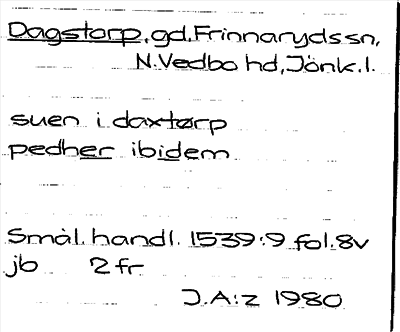 Dagstorp, gd, Frinnaryds sn,
N. Vedbo hd, Jönk. l.
suen i daxtørp
pedher ibidem
Smål. handl. 1539:9 fol. 8v
jb 2 fr
J.A:z 1980